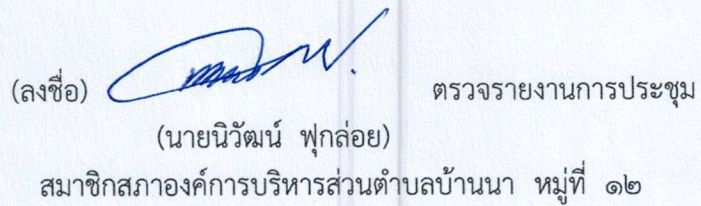 (ลงชื่อ) ตรวจรายงานการประชุม
(นายนิวัฒน์ ฟุกล่อย)
สมาชิกสภาองค์การบริหารส่วนตำบลบ้านนา หมู่ที่ ๑๒